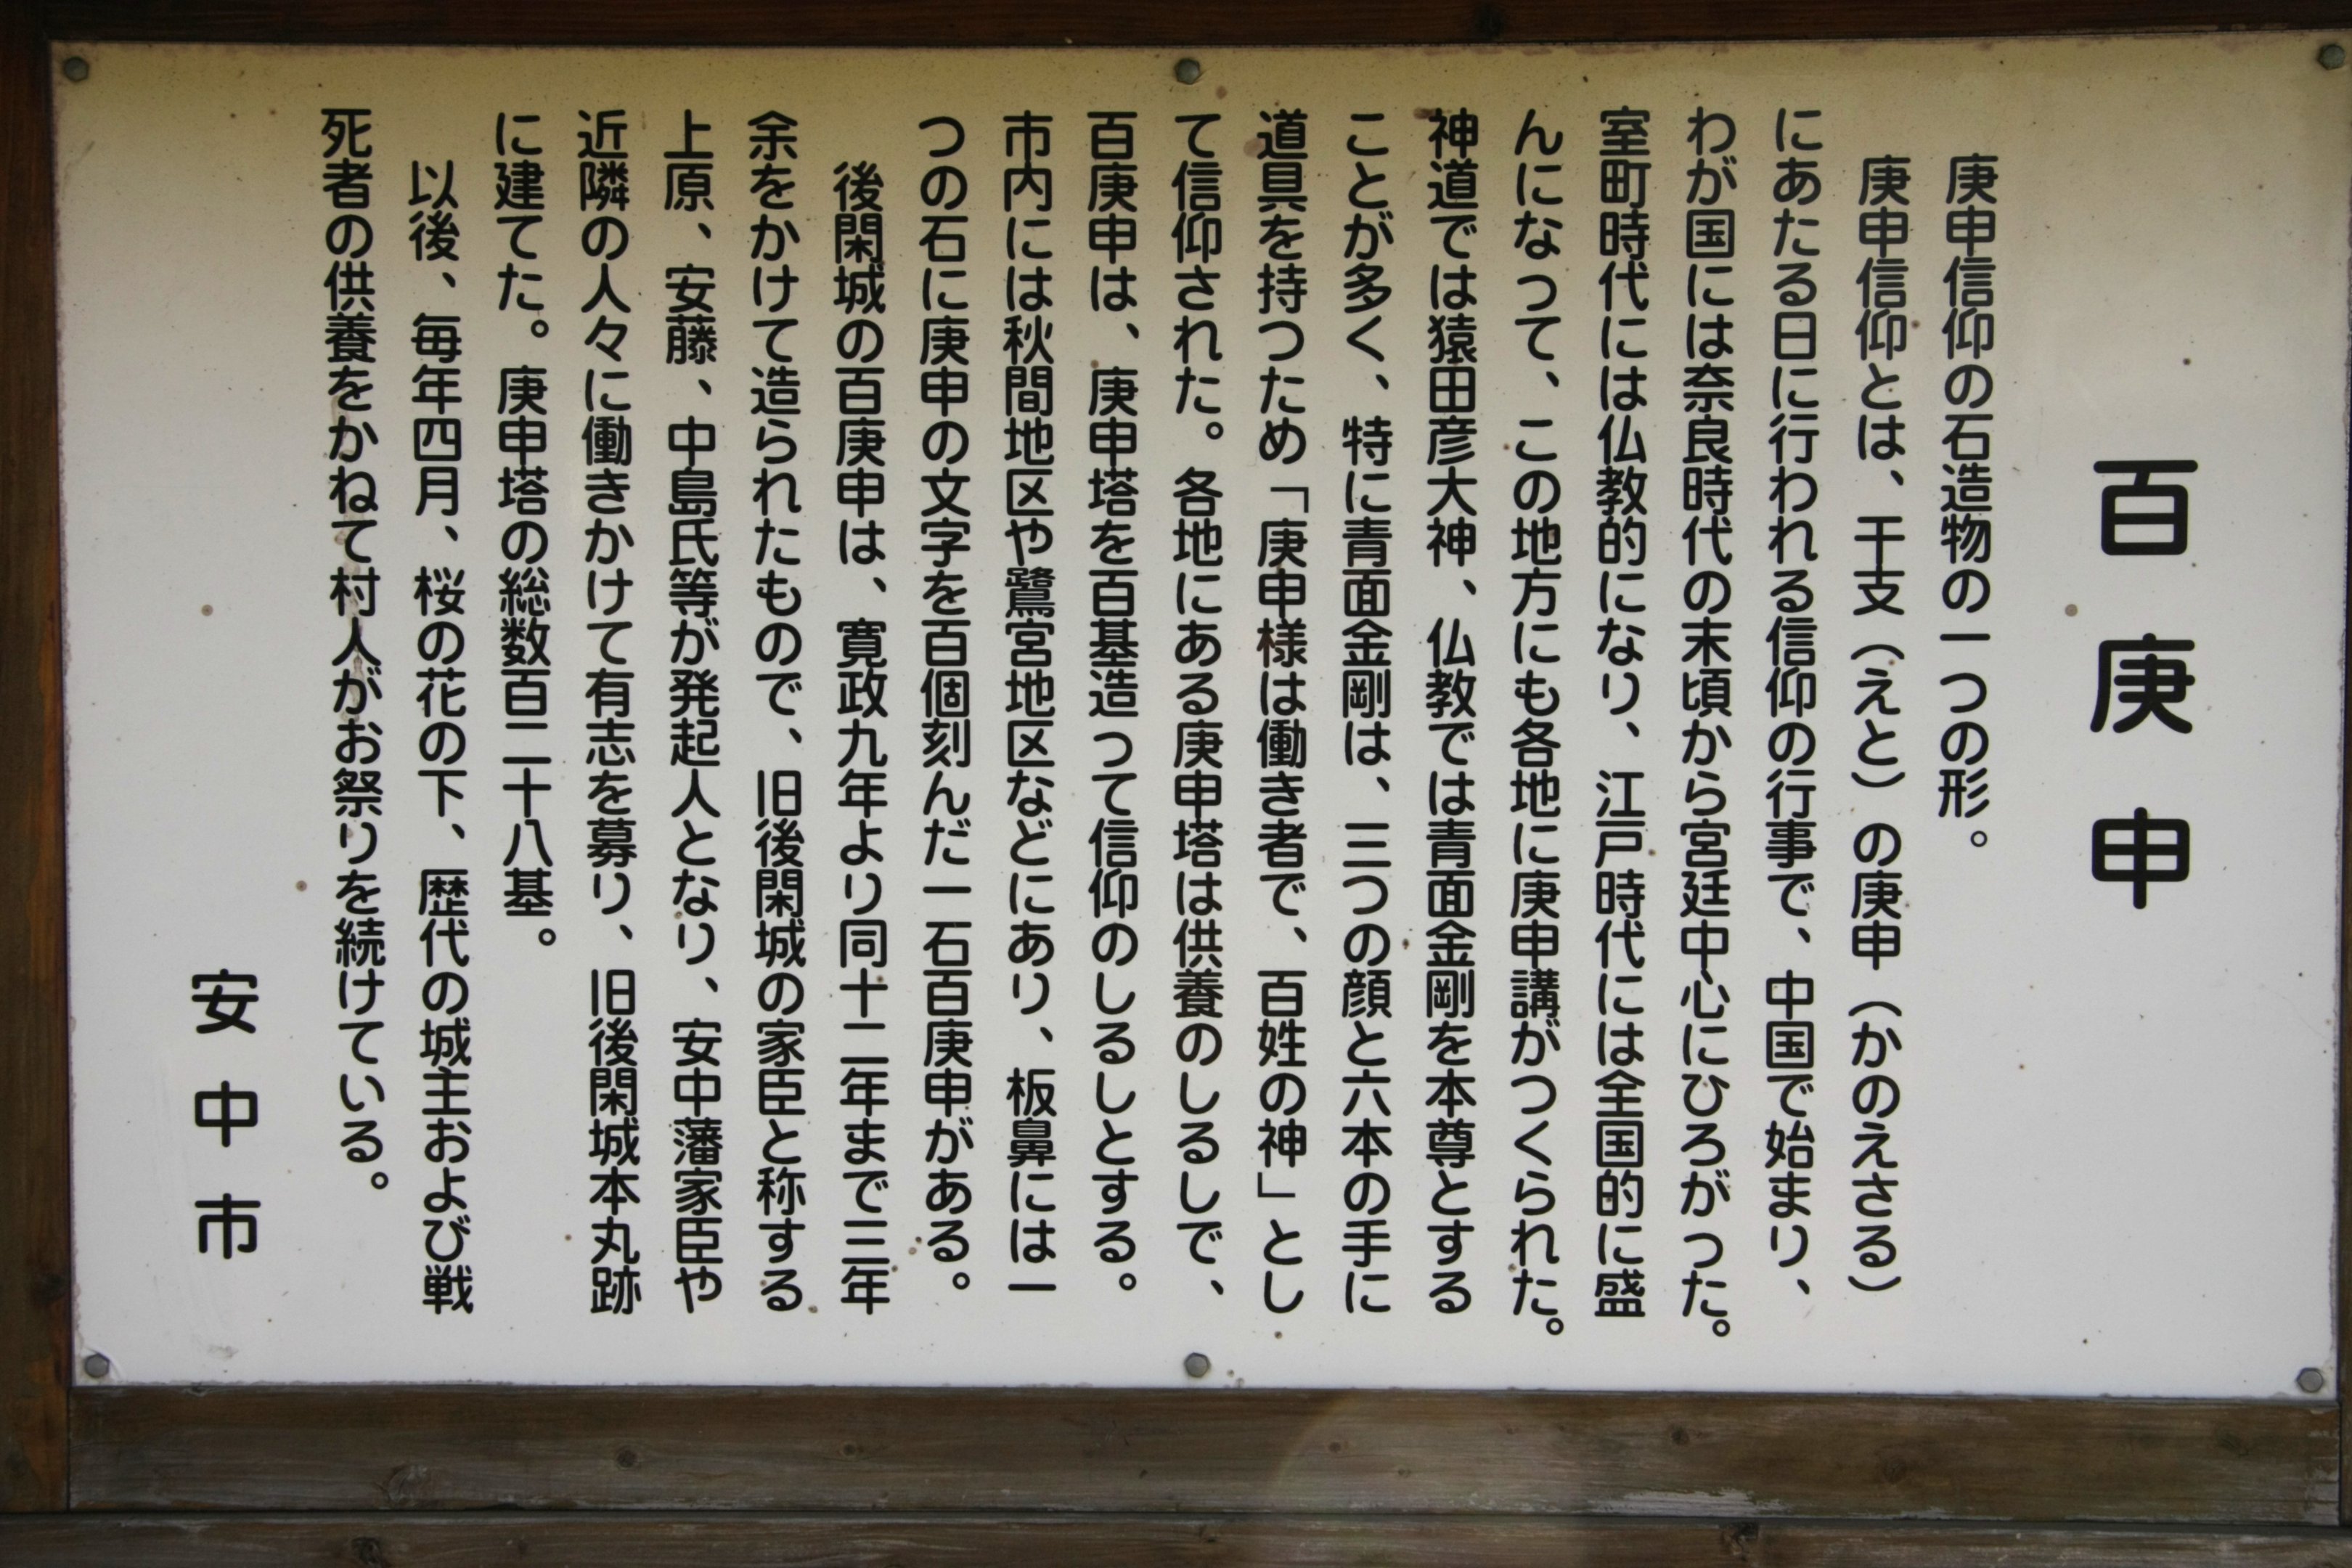 百庚申
庚申信仰の石造物の一つの形。
庚申信仰とは、干支（えと）の庚申（かのえさる）
にあたる日に行われる信仰の行事で、中国で始まり、
わが国には奈良時代の末頃から宮廷中心にひろがった。
室町時代には仏教的になり、江戸時代には全国的に盛
んになって、この地方にも各地に庚申講がつくられた。
神道では猿田彦大神、仏教では青面金剛を本尊とする
ことが多く、特に青面金剛は、三つの顔と六本の手に
道具を持つため「庚申様は働き者で、百姓の神」とし
て信仰された。各地にある庚申塔は供養のしるしで、
百庚申は、庚申塔を百基造って信仰のしるしとする。
市内には秋間地区や鷺宮地区などにあり、板鼻には一
つの石に庚申の文字を百個刻んだ一石百庚申がある。
後閑城の百庚申は、寛政九年より同十二年まで三年
余をかけて造られたもので、旧後閑城の家臣と称する
上原、安藤、中島氏等が発起人となり、安中藩家臣や
近隣の人々に働きかけて有志を募り、旧後閑城本丸跡
に建てた。庚申塔の総数百二十八基。
以後、毎年四月、桜の花の下、歴代の城主および戦
死者の供養をかねて村人がお祭りを続けている。
安中市